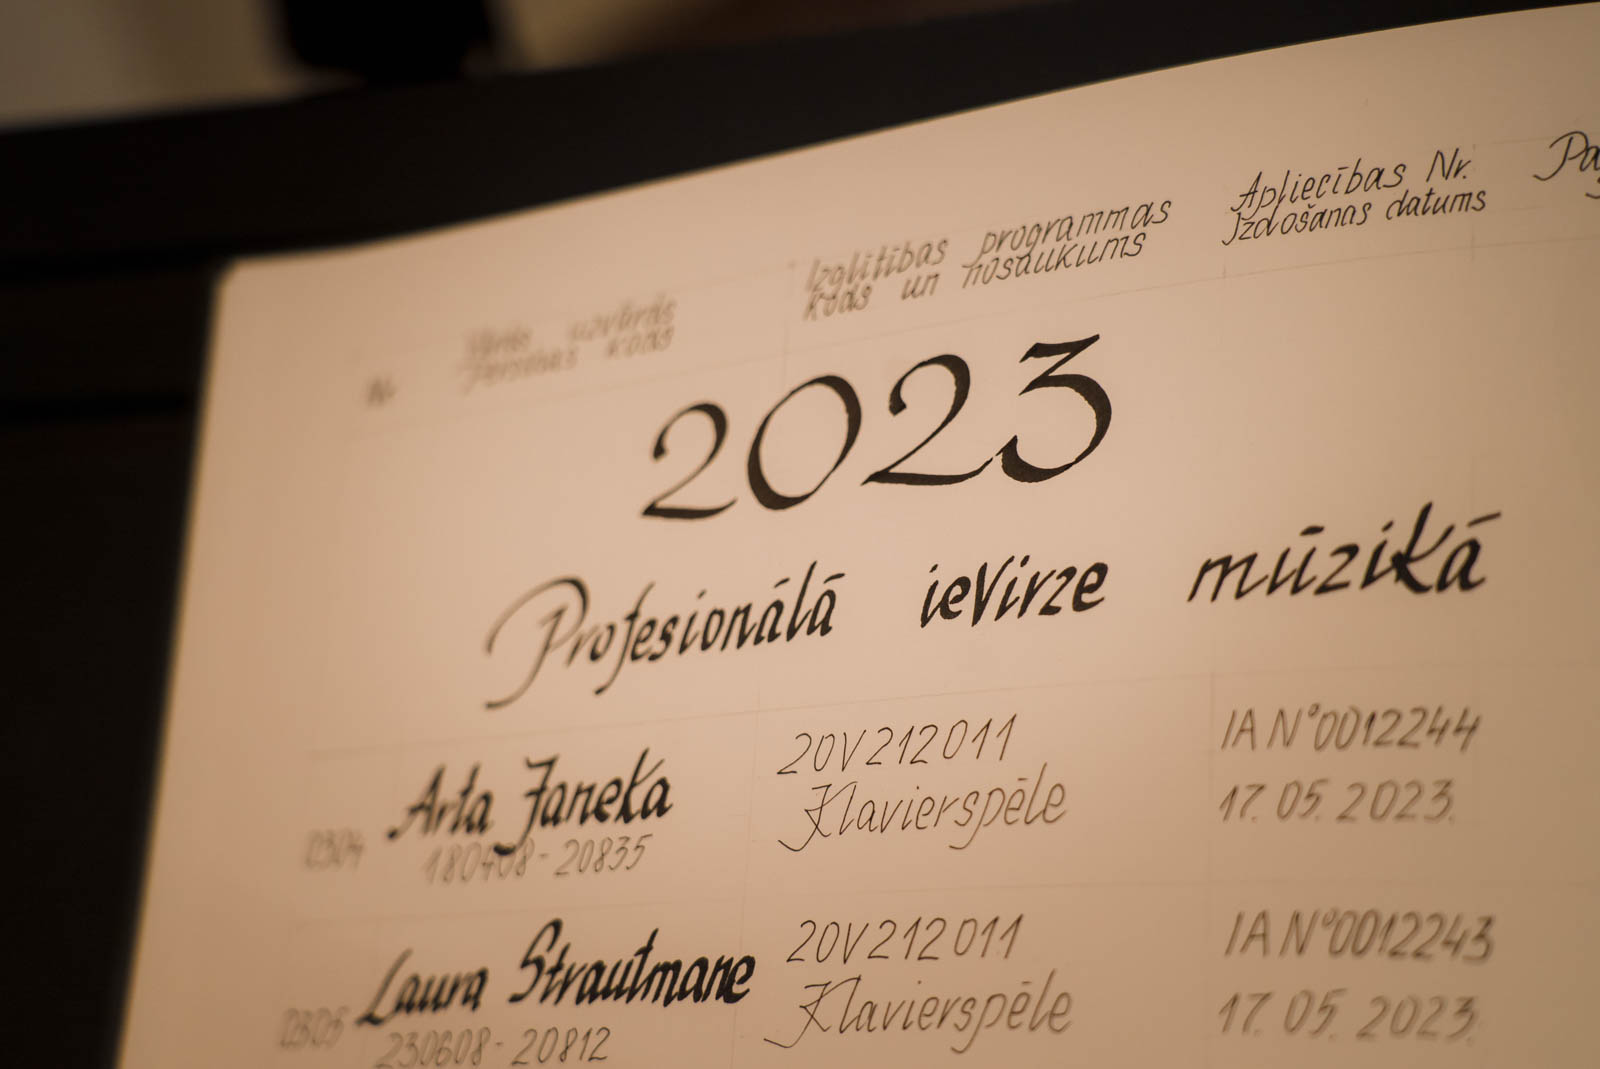 Nr
Vārds uzvārds
Personas kods
Izglītības programmas
kods un nosaukums
Apliecības Nr.
Izdošanas datums
2023
Profesionālā ievirze mūzikā
Arta Janeka
180408-20835
20V212011
Klavierspēle
IA N°0012244
17.05.2023.
Laura Strautmane
230608-20812
20V212011
Klavierspēle
IA N°0012243
17.05.2023.